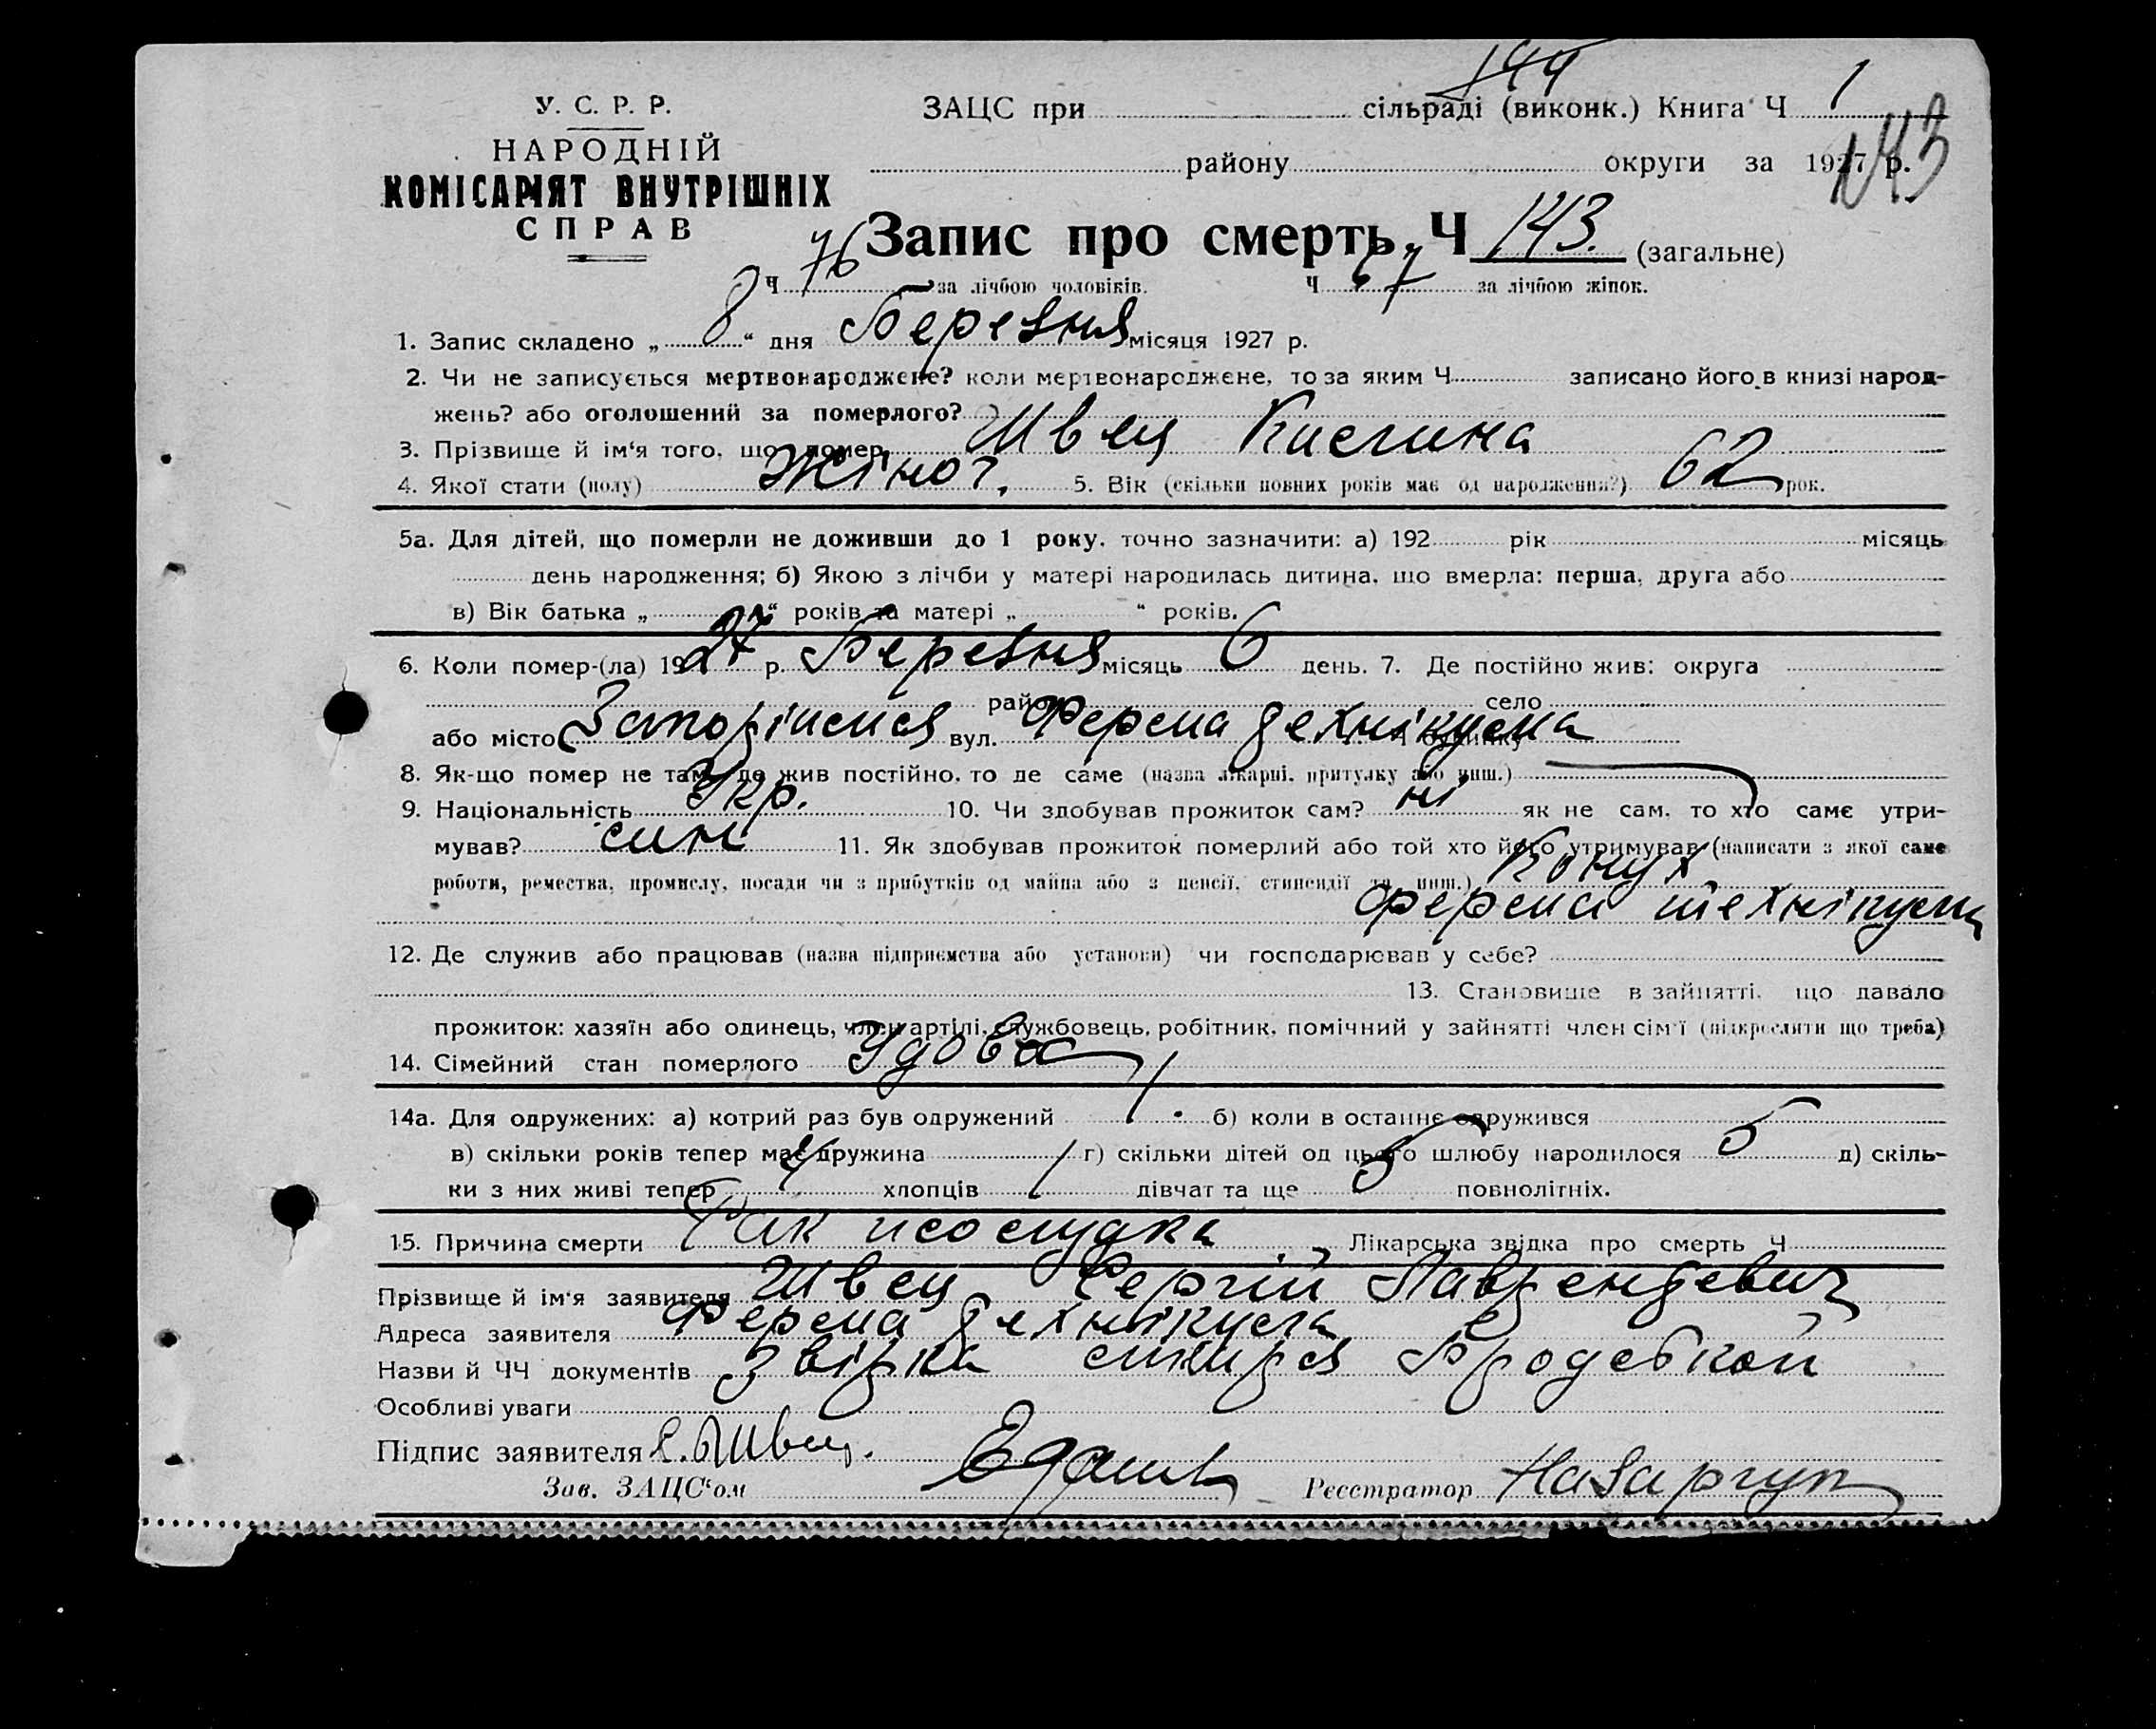 144
У. С. Р. Р.
НАРОДНІЙ
КОМІСАРІЯТ ВНУТРІШНІХ
СПРАВ
ЗАЦС при сільраді (виконк.) Книга Ч 1
143
району округи за 1927 р.
Запис про смерть, Ч 143. (загальне)
Ч 76 за лічбою чоловіків. Ч 67 за лічбою жінок.
1. Запис складено „ 8 “ дня Березня місяця 1927 р.
2. Чи не записується мертвонароджене? коли мертвонароджене, то за яким Ч записано його в книзі народ-
жень? або оголошений за померлого?
3. Прізвище й ім'я того, що помер Швец
4. Якої стати (полу) жіноч. 5. Вік (скільки повних років має од народження?) 62 рок.
5а. Для дітей, що померли не доживши до 1 року, точно зазначити: а) 192 рік місяць
день народження; б) Якою з лічби у матері народилась дитина, що вмерла: перша, друга або
в) Вік батька „ “ років та матері „ “ років.
6. Коли помер-(ла) 1927 р. Березня місяць 6 день. 7. Де постійно жив: округа
район село
або місто Запоріжжя вул. Ферма технікума Ч будинку
8. Як-що помер не там, де жив постійно, то де саме (назва лікарні, притулку або инш.)
9. Національність Укр. 10. Чи здобував прожиток сам? ні як не сам, то хто саме утри-
мував? син 11. Як здобував прожиток померлий або той хто його утримував (написати з якої саме
роботи, ремества, промислу, посади чи з прибутків од майна або з пенсії, стипендії та инш.) Конюх
Ферма технікума
12. Де служив або працював (назва підприємства або установи) чи господарював у себе?
13. Становище в зайнятті, що давало
прожиток: хазяїн або одинець, член артілі, службовець, робітник, помічний у зайнятті член сім'ї (підкреслити що треба)
14. Сімейний стан померлого Удова
14а. Для одружених: а) котрий раз був одружений 1 б) коли в останнє одружився
в) скільки років тепер має дружина г) скільки дітей од цього шлюбу народилося 5 д) скіль-
ки з них живі тепер 4 хлопців 1 дівчат та ще 5 повнолітніх.
15. Причина смерти Рак жолудка Лікарська звідка про смерть Ч
Прізвище й ім'я заявителя Швец Сергій Лаврентевич
Адреса заявителя Ферма технікума
Назви й ЧЧ документів звідка лікаря Бродской
Особливі уваги
Підпис заявителя С. Швец.
Зав. ЗАЦС'ом Реєстратор